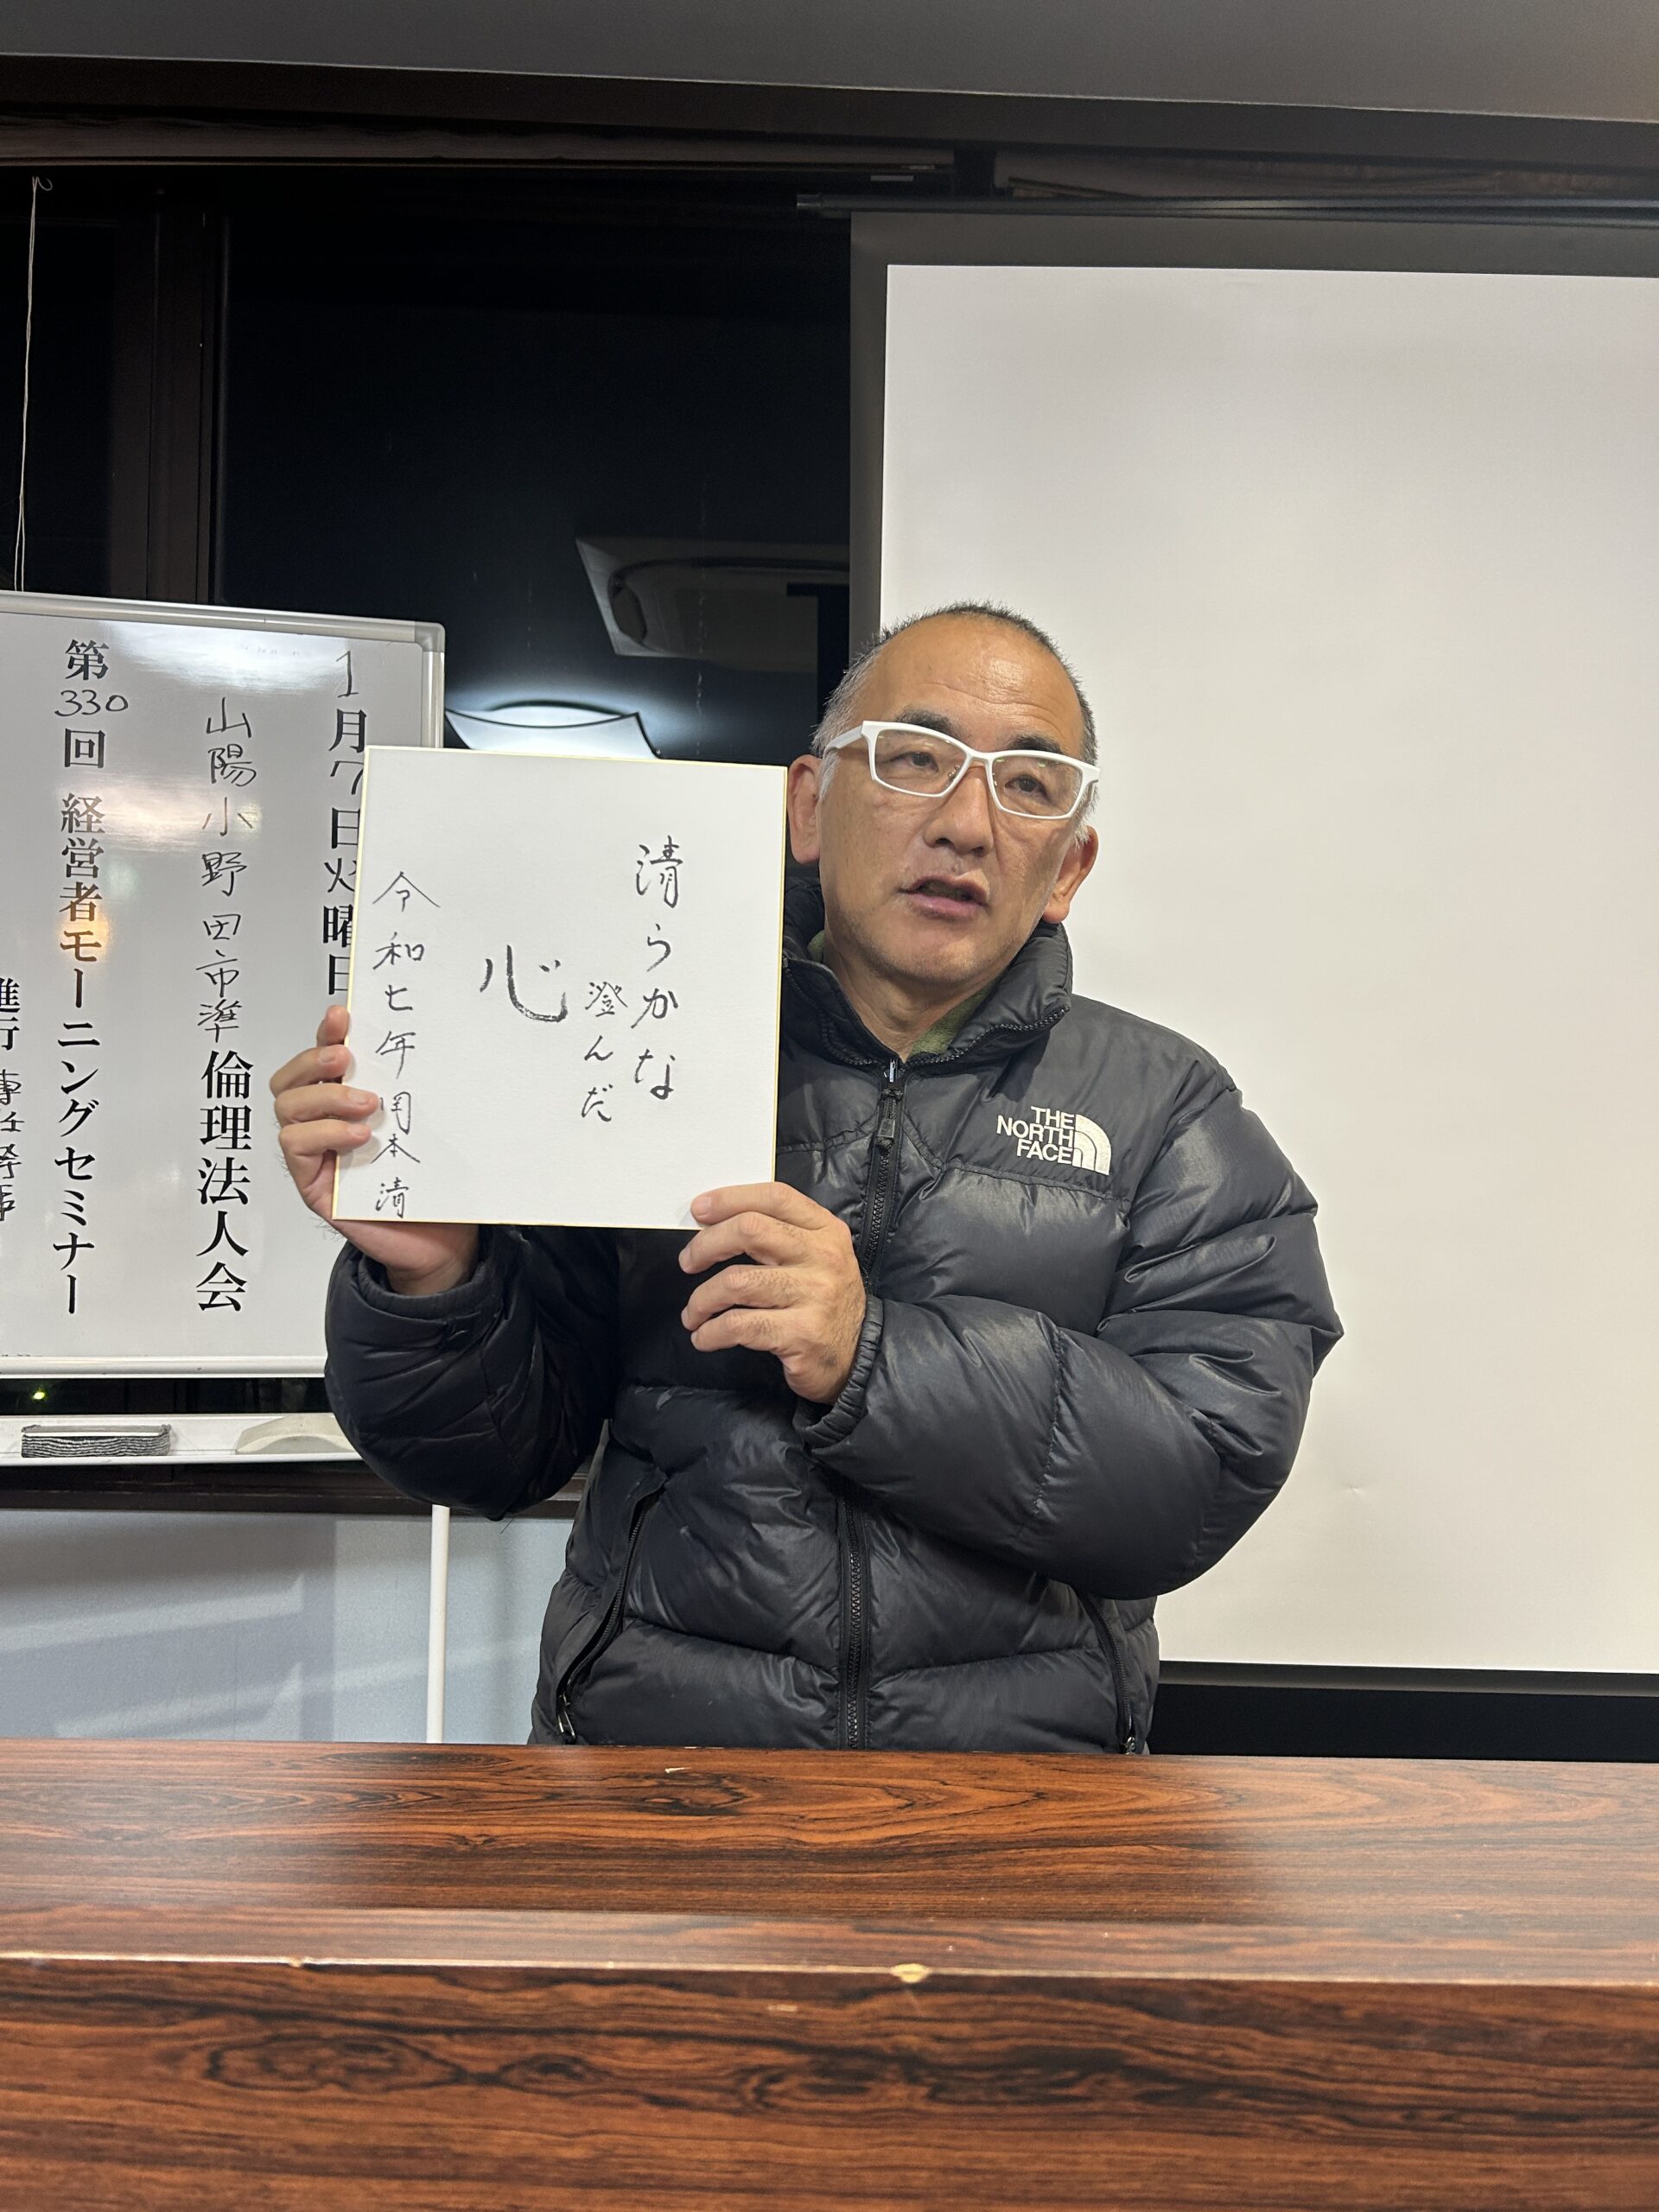 清らかな
澄んだ
心
令和七年 岡本清
1月7日火曜日
山陽小野田市準倫理法人会
第330回 経営者モーニングセミナー
進行 専任幹事
THE
NORTH
FACE